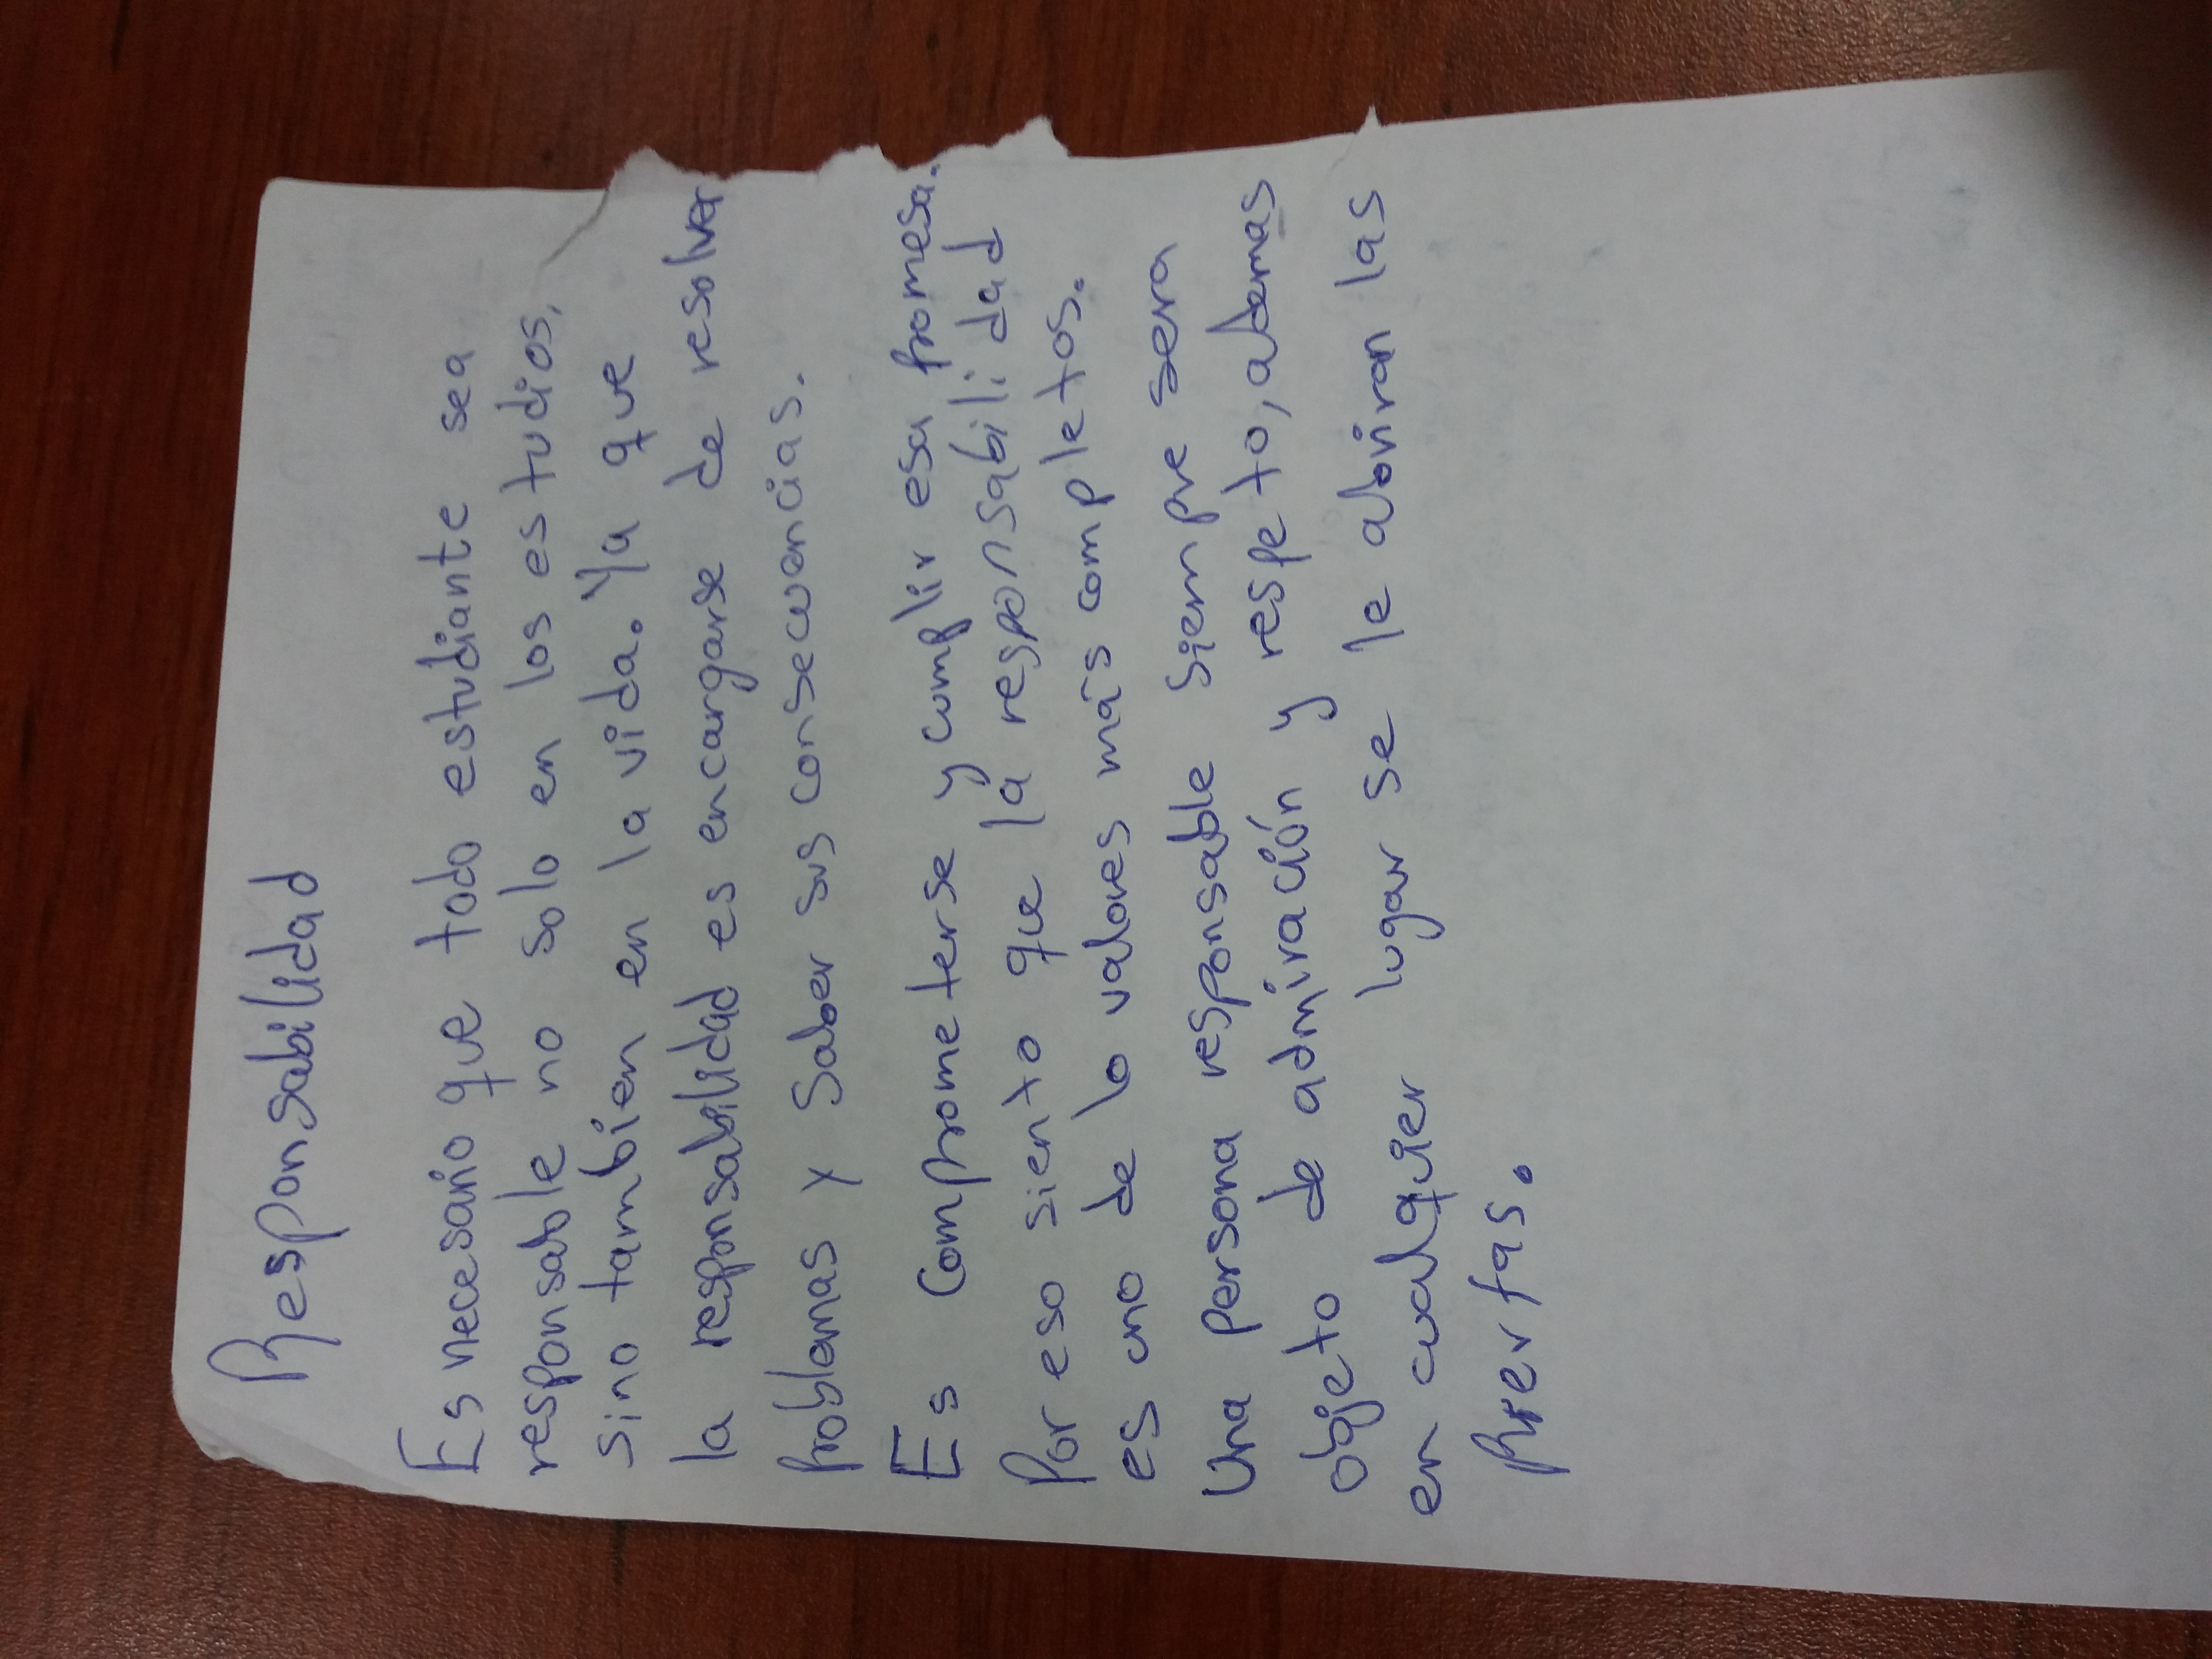 Responsabilidad
Es necesario que todo estudiante sea
responsable no solo en los estudios,
sino tambien en la vida. Ya que
la responsabilidad es encargarse de resolver
problemas y saber sus consecuencias.
Es comprometerse y cumplir esa promesa.
Por eso siento que la responsabilidad
es uno de lo valores más completos.
Una persona responsable siempre sera
objeto de admiración y respeto, ademas
en cualquier lugar se le abriran las
Puertas.